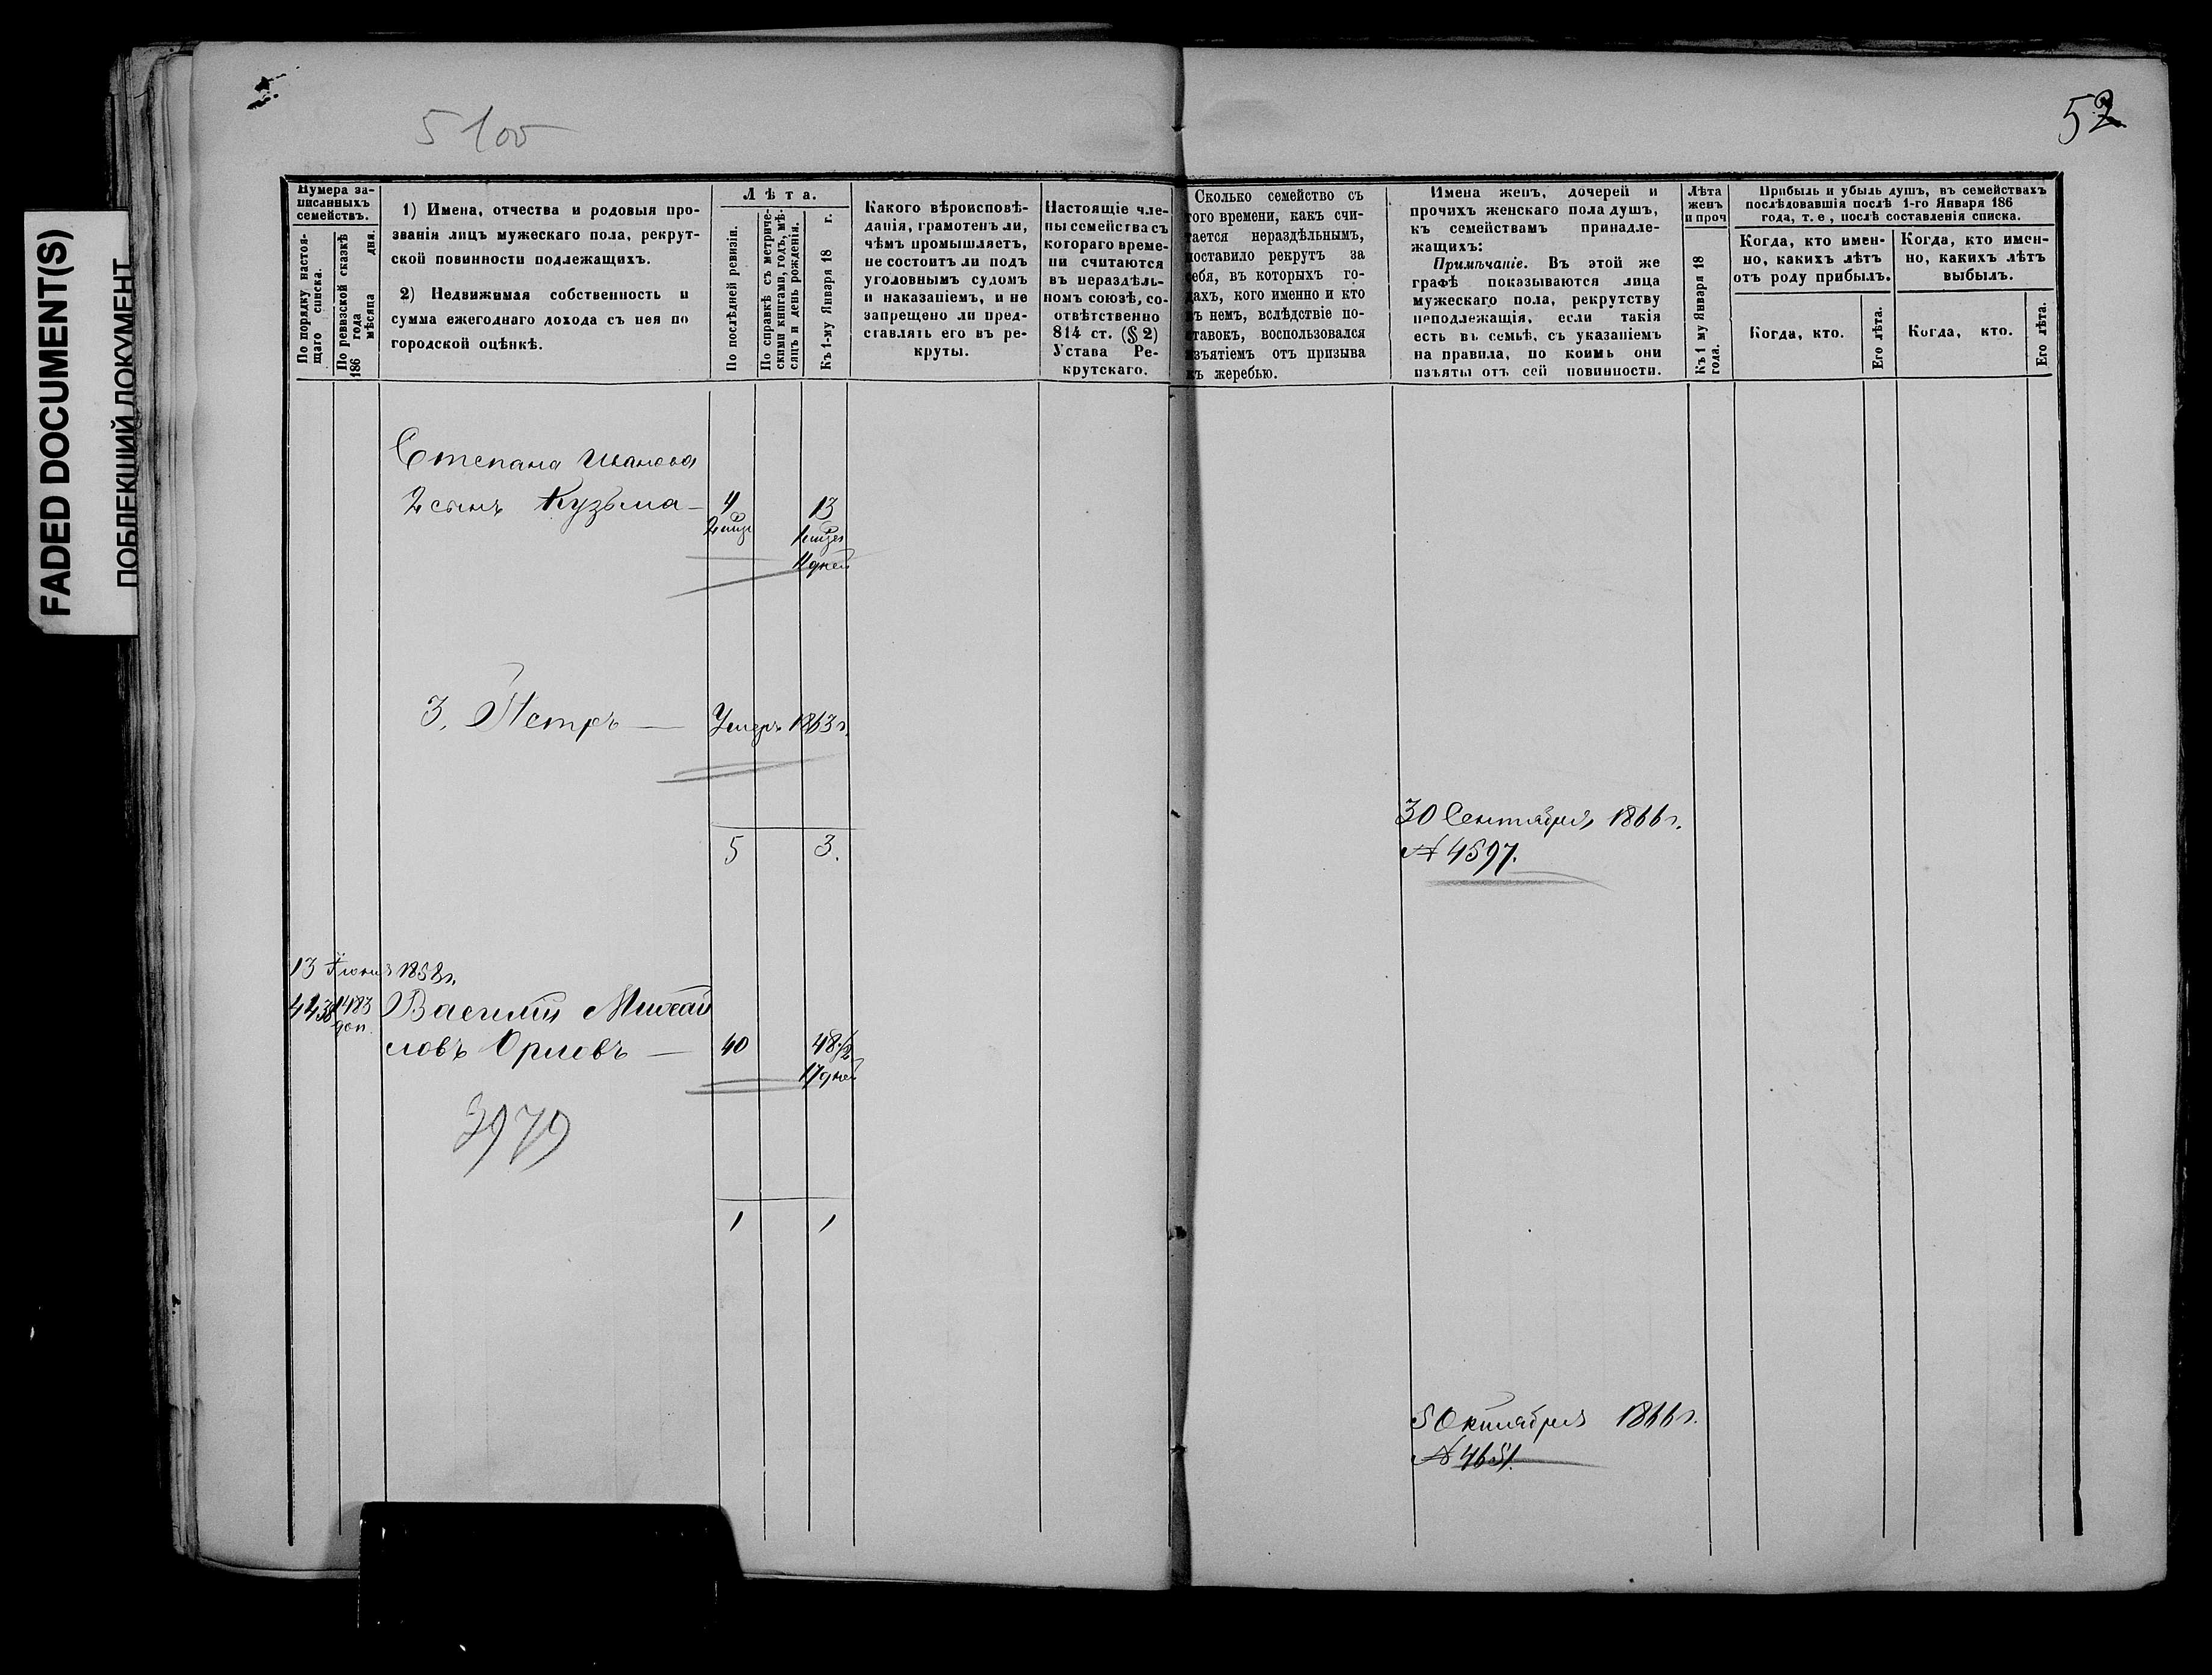 FADED DOCUMENT(S)
ПОБЛЕКШИЙ ДОКУМЕНТ
5100
52
Нумера за-
писанныхъ
семействъ.
По порядку настоя-
щаго списка.
По ревизской сказкѣ
186 года мѣсяца дня.
1) Имена, отчества и родовыя про-
званія лицъ мужескаго пола, рекрут-
ской повинности подлежащихъ.
2) Недвижимая собственность и
сумма ежегоднаго дохода съ нея по
городской оцѣнкѣ.
Лѣта.
По послѣдней ревизіи.
По справкѣ съ метриче-
скими книгами, годъ, мѣ-
сяцъ и день рожденія.
Къ 1-му Января 18 г.
Какого вѣроисповѣ-
данія, грамотенъ ли,
чѣмъ промышляетъ,
не состоитъ ли подъ
уголовнымъ судомъ
и наказаніемъ, и не
запрещено ли пред-
ставлять его въ ре-
круты.
Настоящіе чле-
ны семейства съ
котораго време-
ни считаются
въ нераздѣль-
номъ союзѣ, со-
отвѣтственно
814 ст. (§ 2)
Устава Ре-
крутскаго.
Сколько семейство съ
того времени, какъ счи-
тается нераздѣльнымъ,
поставило рекрутъ за
себя, въ которыхъ го-
дахъ, кого именно и кто
въ немъ, вслѣдствіе по-
ставокъ, воспользовался
изъятіемъ отъ призыва
къ жеребью.
Имена женъ, дочерей и
прочихъ женскаго пола душъ,
къ семействамъ принадле-
жащихъ:
Примѣчаніе. Въ этой же
графѣ показываются лица
мужескаго пола, рекрутству
неподлежащія, если такія
есть въ семьѣ, съ указаніемъ
на правила, по коимъ они
изъяты отъ сей повинности.
Лѣта
женъ
и проч
Къ 1 му Января 18
года.
Прибыль и убыль душъ, въ семействахъ
послѣдовавшія послѣ 1-го Января 186
года, т. е , послѣ составленія списка.
Когда, кто имен-
но, какихъ лѣтъ
отъ роду прибылъ.
Когда, кто имен-
но, какихъ лѣтъ
выбылъ.
Когда, кто.
Его лѣта.
Когда, кто.
Его лѣта.
Степана Иванова
2 сынъ Кузьма — 4 13
дней
3. Петръ — Умеръ 1863 г.
30 Сентября 1866 г.
5 3.
№ 4597.
13 Іюня 1858 г.
1483 Василій Михай
доп.
ловъ Орловъ — 40 48 1/2
17 дней
3979
1 1
5 Октября 1866 г.
№ 4651.